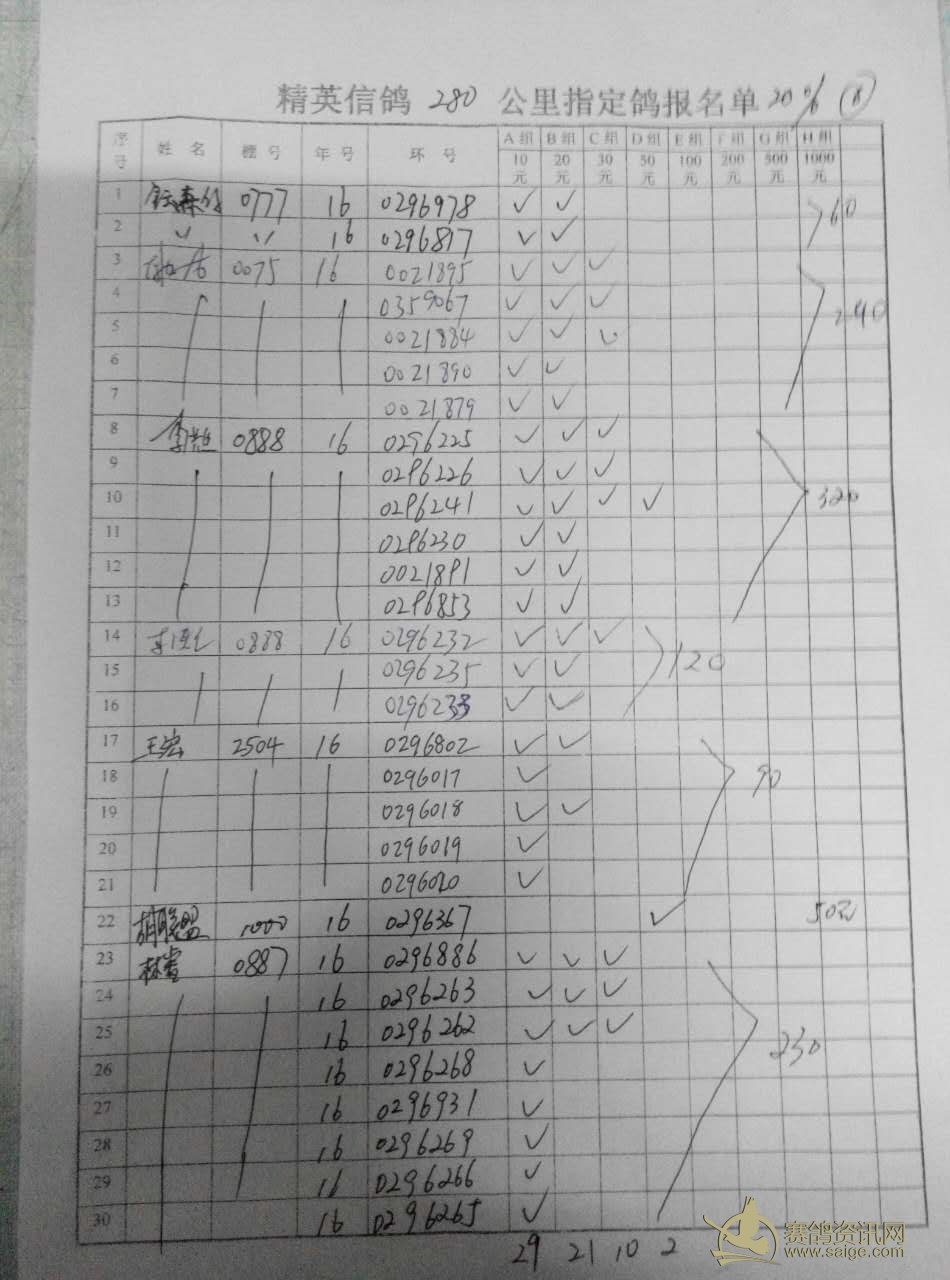 精英信鸽 280 公里指定鸽报名单 20 % (8)
序号 姓名 棚号 年号 环号 A组 10元 B组 20元 C组 30元 D组 50元 E组 100元 F组 200元 G组 500元 H组 1000元
1 0777 16 0296978 ✓ ✓ 60
2 〃 〃 16 0296817 ✓ ✓
3 0075 16 0021895 ✓ ✓ ✓
4 0359067 ✓ ✓ ✓ 240
5 0021884 ✓ ✓ ✓
6 0021890 ✓ ✓
7 0021879 ✓ ✓
8 0888 16 0296225 ✓ ✓ ✓
9 0296226 ✓ ✓ ✓
10 0296241 ✓ ✓ ✓ ✓ 320
11 0296230 ✓ ✓
12 0021891 ✓ ✓
13 0296853 ✓ ✓
14 0888 16 0296232 ✓ ✓ ✓
15 0296235 ✓ ✓ 120
16 0296233 ✓ ✓
17 王宏 2504 16 0296802 ✓ ✓
18 0296017 ✓ 90
19 0296018 ✓ ✓
20 0296019 ✓
21 0296020 ✓
22 胡联盟 1000 16 0296367 ✓ 50元
23 0887 16 0296886 ✓ ✓ ✓
24 16 0296263 ✓ ✓ ✓
25 16 0296262 ✓ ✓ ✓ 230
26 16 0296268 ✓
27 16 0296931 ✓
28 16 0296269 ✓
29 16 0296266 ✓
30 16 0296265 ✓
29 21 10 2
赛鸽资讯网
www.saige.com